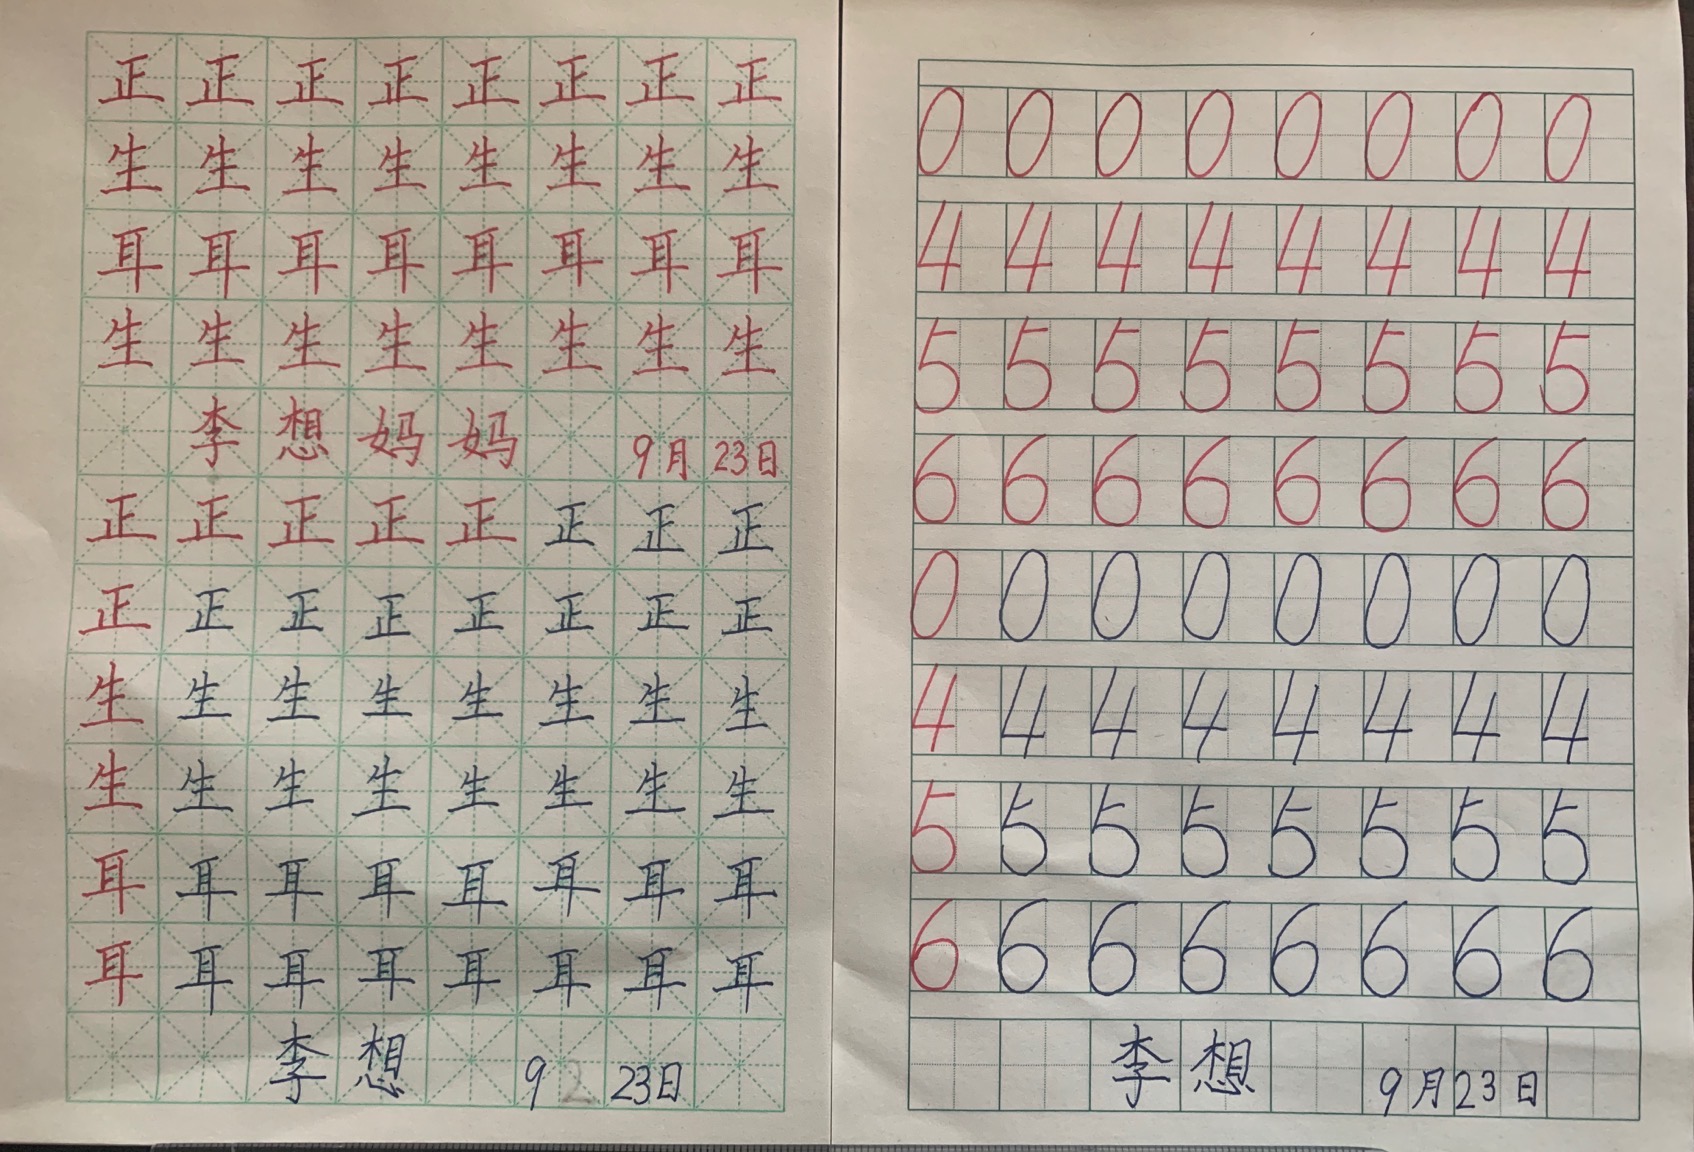 正 正 正 正 正 正 正 正
生 生 生 生 生 生 生 生
耳 耳 耳 耳 耳 耳 耳 耳
生 生 生 生 生 生 生 生
李 想 妈 妈 9月 23日
正 正 正 正 正 正 正 正
正 正 正 正 正 正 正 正
生 生 生 生 生 生 生 生
生 生 生 生 生 生 生 生
耳 耳 耳 耳 耳 耳 耳 耳
耳 耳 耳 耳 耳 耳 耳 耳
李 想 9 2 23日
0 0 0 0 0 0 0 0
4 4 4 4 4 4 4 4
5 5 5 5 5 5 5 5
6 6 6 6 6 6 6 6
0 0 0 0 0 0 0 0
4 4 4 4 4 4 4 4
5 5 5 5 5 5 5 5
6 6 6 6 6 6 6 6
李 想 9月23日